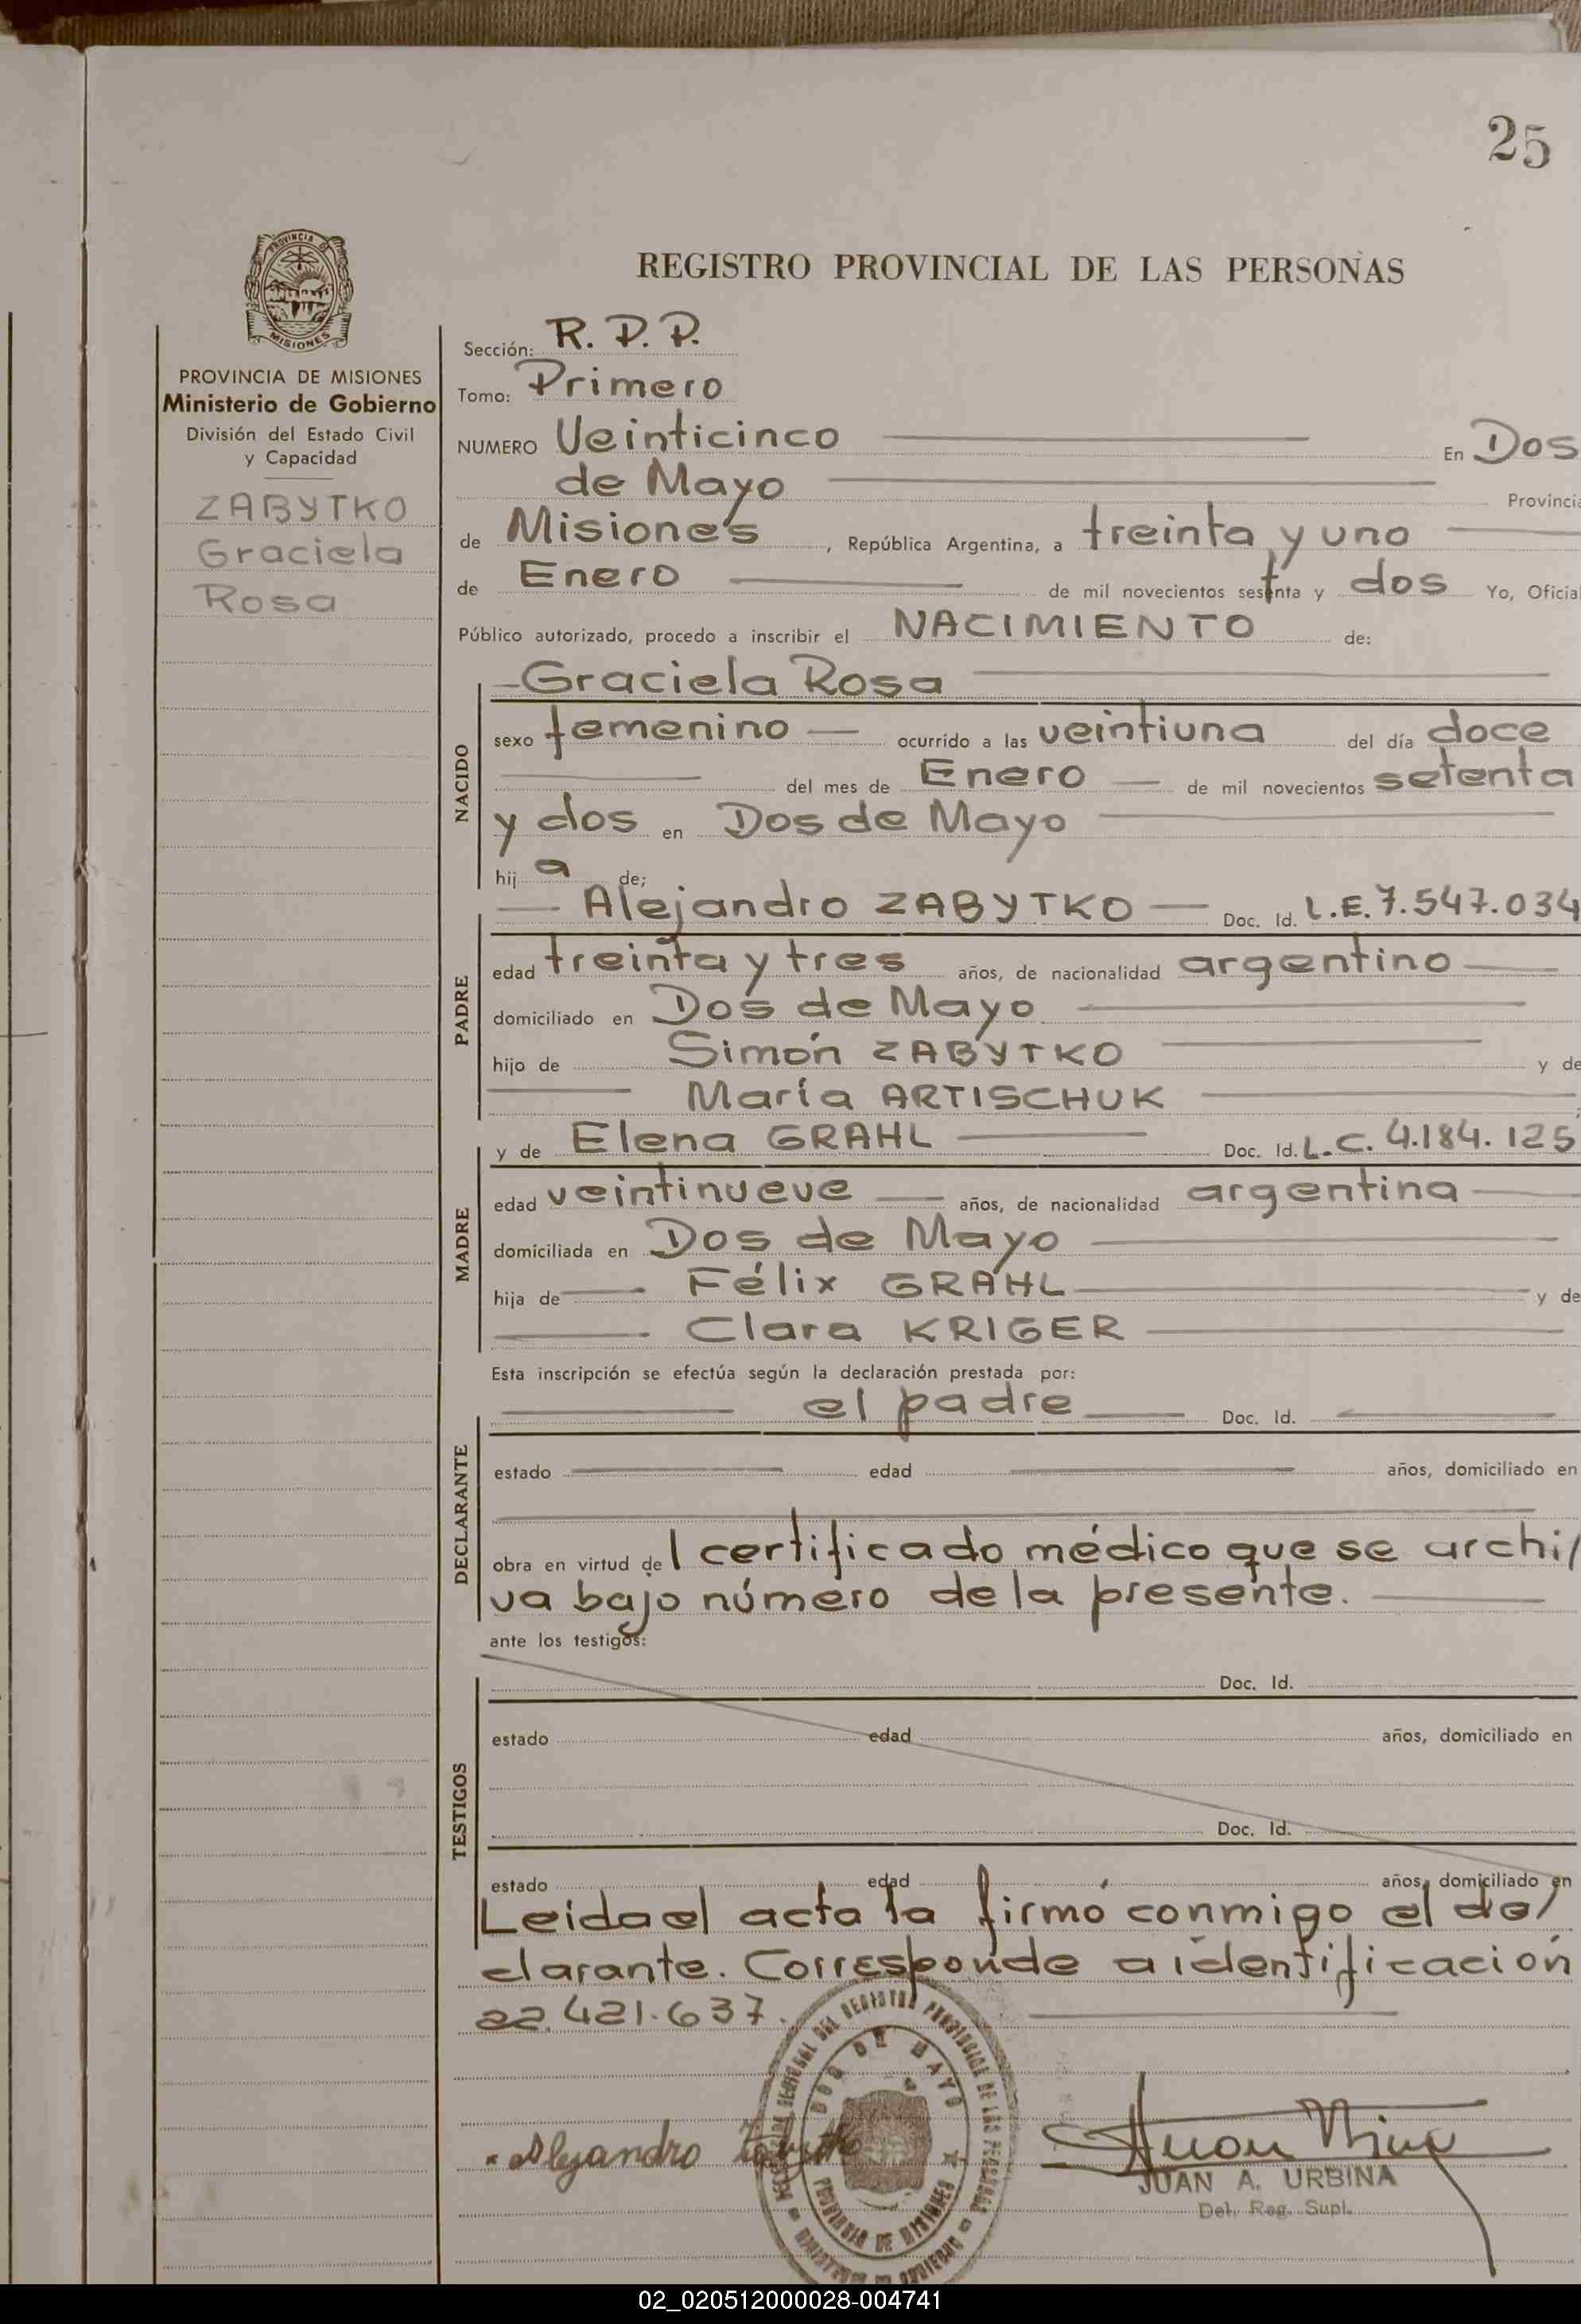 25
PROVINCIA DE
MISIONES
PROVINCIA DE MISIONES
Ministerio de Gobierno
División del Estado Civil
y Capacidad
ZABYTKO
Graciela
Rosa
REGISTRO PROVINCIAL DE LAS PERSONAS
Sección: R. P. P.
Tomo: Primero
NUMERO Veinticinco En Dos
de Mayo Provincia
de Misiones, República Argentina, a treinta y uno
de Enero de mil novecientos setenta y dos Yo, Oficial
Público autorizado, procedo a inscribir el NACIMIENTO de:
NACIDO
Graciela Rosa
sexo femenino ocurrido a las veintiuna del día doce
del mes de Enero de mil novecientos setenta
y dos en Dos de Mayo
hija de;
PADRE
Alejandro ZABYTKO Doc. Id. L.E. 7.547.034
edad treinta y tres años, de nacionalidad argentino
domiciliado en Dos de Mayo
hijo de Simón ZABYTKO y de
María ARTISCHUK
MADRE
y de Elena GRAHL Doc. Id. L.C. 4.184.125
edad veintinueve años, de nacionalidad argentina
domiciliada en Dos de Mayo
hija de Félix GRAHL y de
Clara KRIGER
Esta inscripción se efectúa según la declaración prestada por:
DECLARANTE
el padre Doc. Id.
estado edad años, domiciliado en
obra en virtud del certificado médico que se archi/
va bajo número de la presente.
ante los testigos:
TESTIGOS
Doc. Id.
estado edad años, domiciliado en
Doc. Id.
estado edad años, domiciliado en
Leida el acta la firmó conmigo el de/
clarante. Corresponde a identificación
22.421.637.
DOS DE MAYO
PROVINCIA DE MISIONES
Alejandro Zabytko
JUAN A. URBINA
Del. Reg. Supl.
02_020512000028-004741